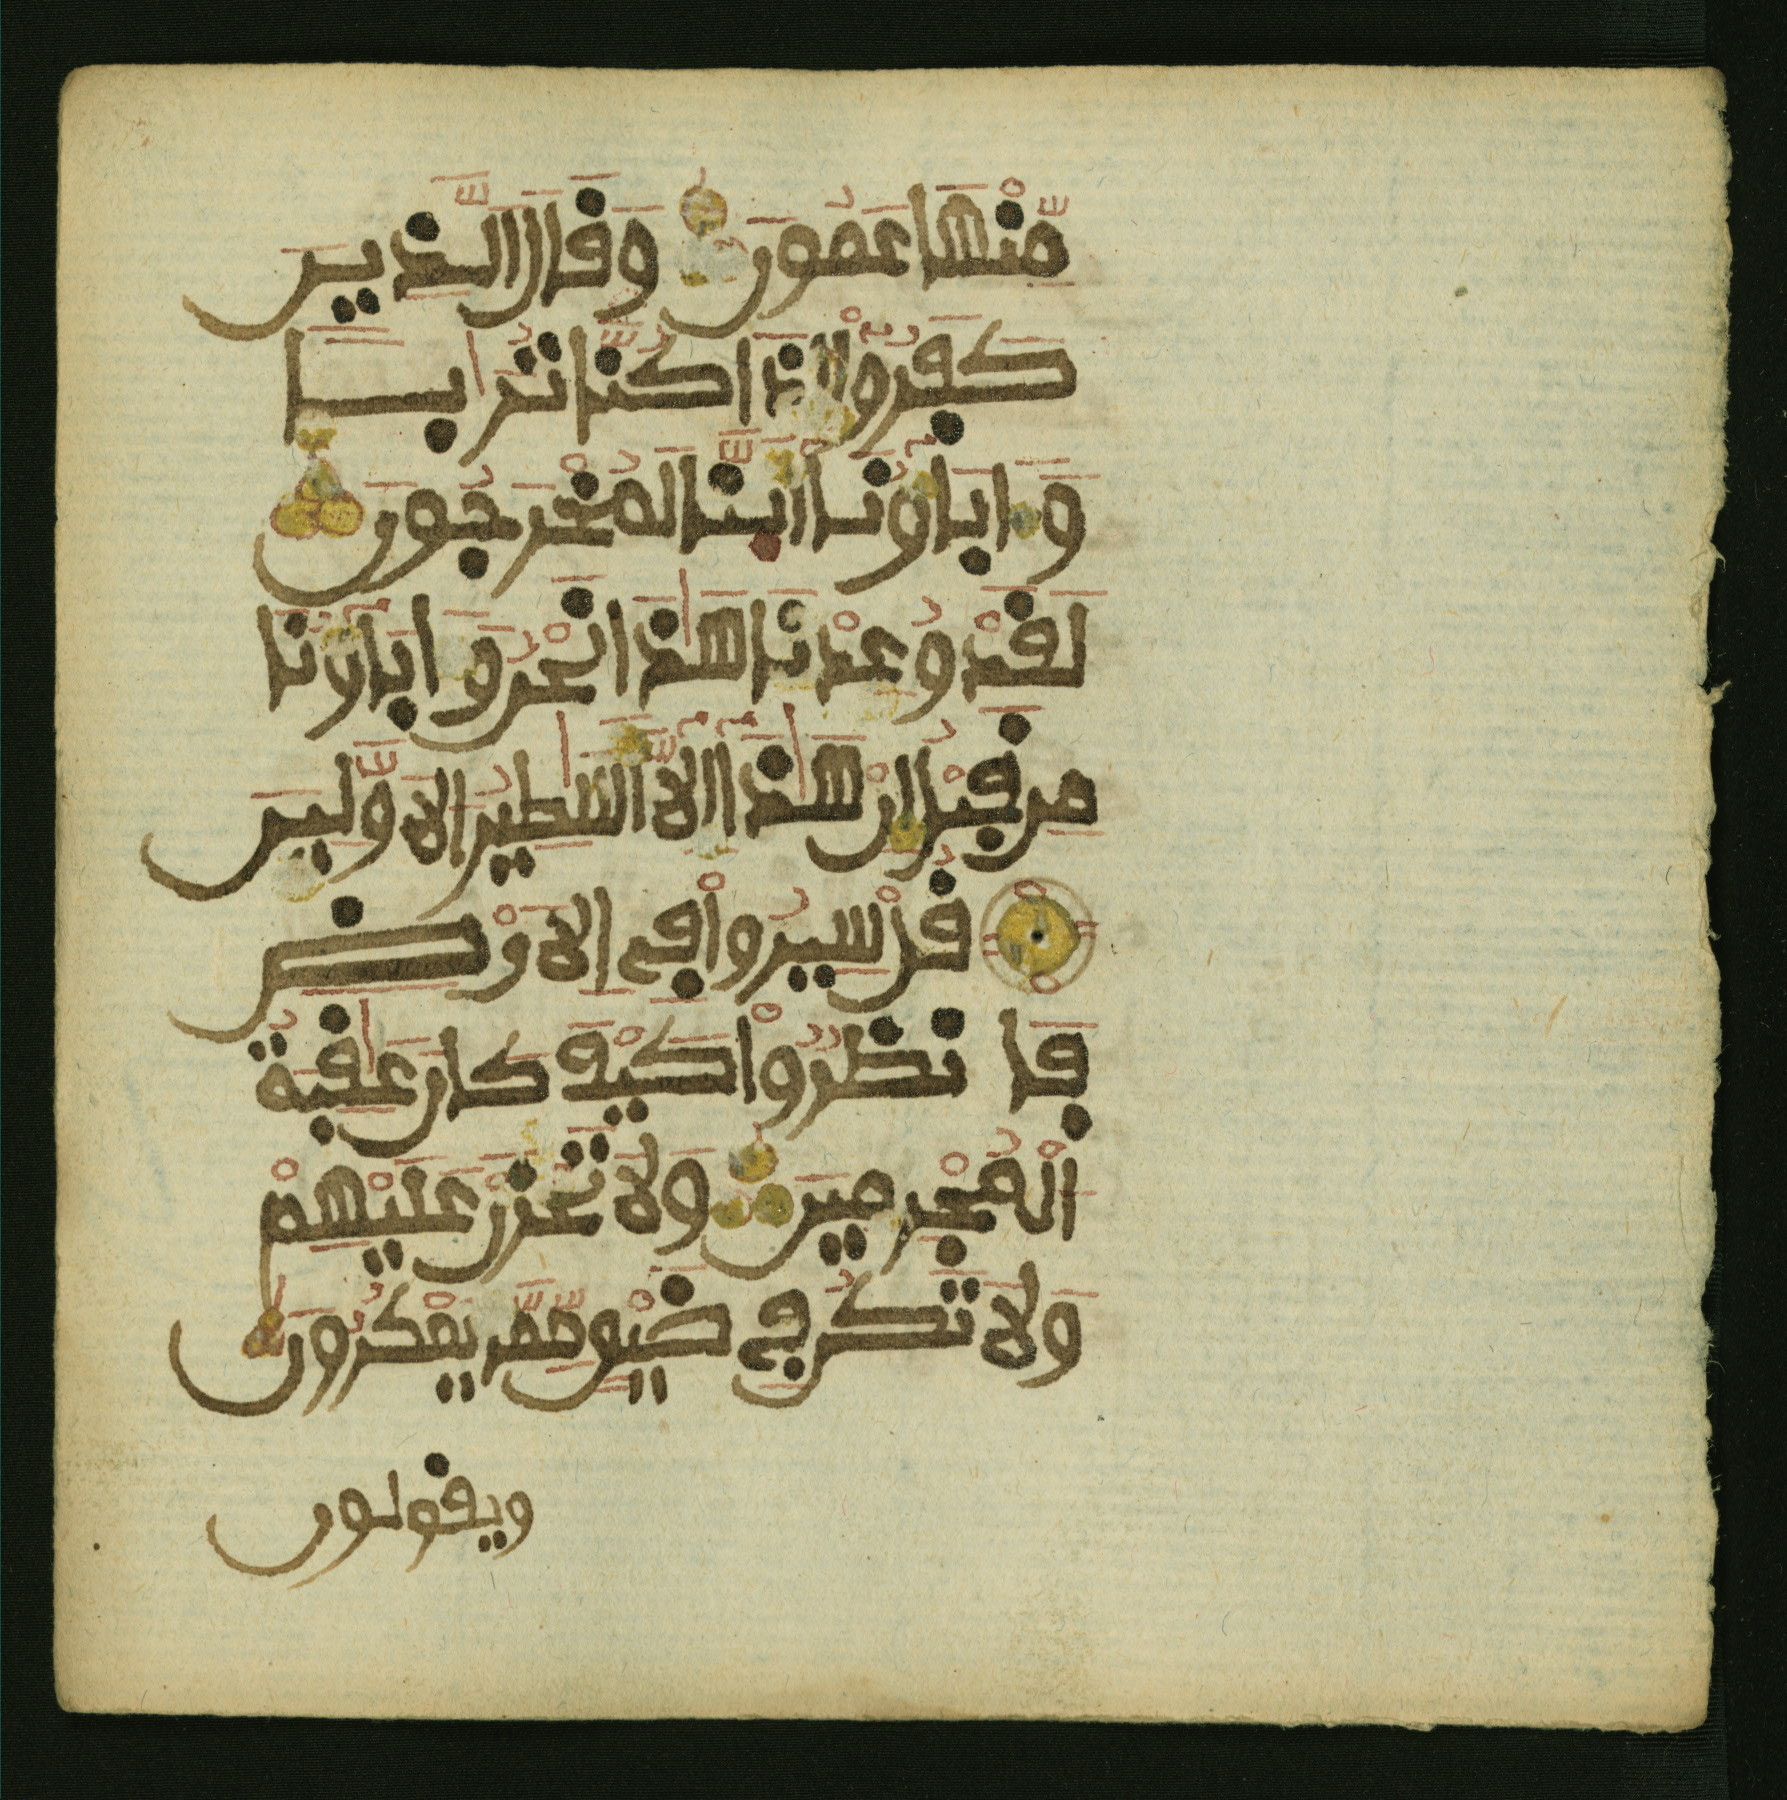 مِّنْهَا عَمُونَ وَقَالَ الَّذِينَ
كَفَرُوٓاْ أَ۟ذَا كُنَّا تُرَٰباً
وَءَابَآؤُنَآ أَئِنَّا لَمُخْرَجُونَ
لَقَدْ وُعِدْنَا هَٰذَا نَحْنُ وَءَابَآؤُنَا
مِن قَبْلُ إِنْ هَٰذَآ إِلَّآ أَسَٰطِيرُ الَاوَّلِينَ
قُلْ سِيرُواْ فِي الَارْضِ
فَا نظُرُواْ كَيْفَ كَانَ عَٰقِبَةُ
الْمُجْرِمِينَ وَلَا تَحْزَنْ عَلَيْهِمْ
وَلَا تَكُن فِي ضَيْقٍ مِّمَّا يَمْكُرُونَ
ويقولون